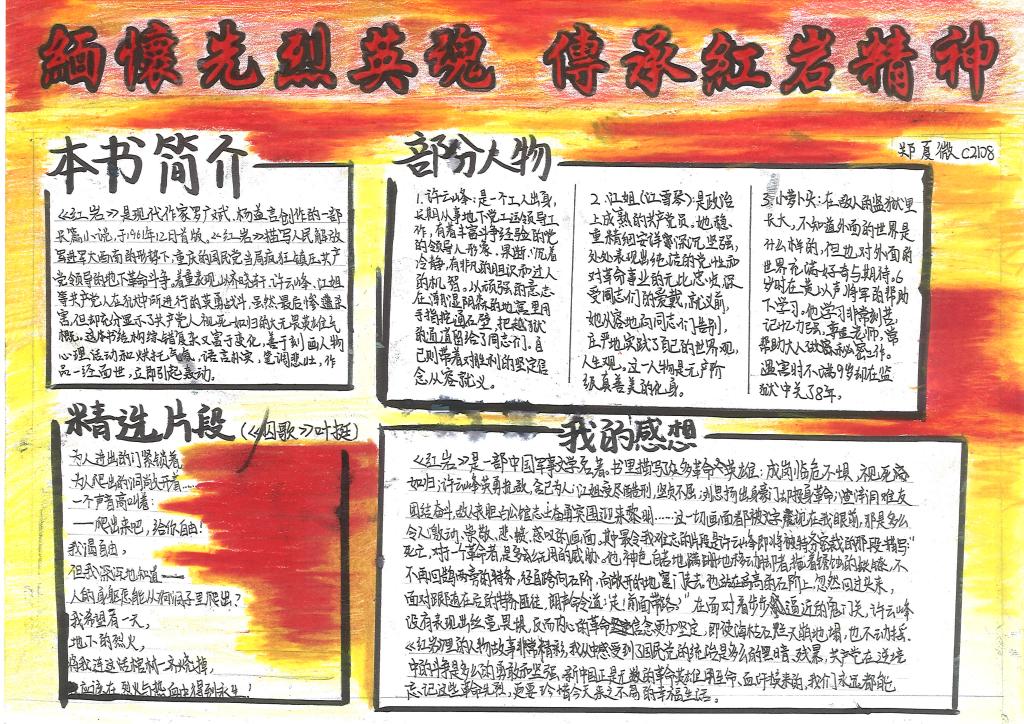 緬懷先烈英魂 傳承紅岩精神
郑夏微C2108
本书简介
《红岩》是现代作家罗广斌、杨益言创作的一部
长篇小说,于1961年12月首版。《红岩》描写人民解放
军进军大西南的形势下,重庆的国民党当局疯狂镇压共产
党领导的地下革命斗争,着重表现以齐晓轩、许云峰、江姐
等共产党人在狱中所进行的英勇战斗,虽然最后惨遭杀
害,但却充分显示了共产党人视死如归的大无畏英雄气
概。这本书结构错综复杂又富于变化,善于刻画人物
心理活动和烘托气氛,语言朴实,笔调悲壮,作
品一经面世,立即引起轰动。
部分人物
1.许云峰:是一个工人出身,
长期从事地下党工运领导工
作,有着丰富斗争经验的党
的领导人形象。果断、沉着
冷静,有非凡的胆识和过人
的机智。以顽强的意志
在潮湿阴森的地窖里用
手指挖通石壁,把越狱
的通道留给了同志们,自
己则带着对胜利的坚定信
念从容就义。
2.江姐(江雪琴):是政治
上成熟的共产党员。她稳
重精细安详繁深沉坚强,
处处表现出纯洁的党性和
对革命事业的无比忠贞。深
受同志们的爱戴,就义前,
她从容地向同志们告别,
庄严地实践了自己的世界观,
人生观。这一人物是无产阶
级真善美的化身。
3.小萝卜头:在敌人的监狱里
长大,不知道外面的世界是
什么样的,但也对外面的
世界充满好奇与期待。6
岁时在黄以声将军的帮助
下学习。他学习非常刻苦
记忆力强、尊重老师,常
帮助大人做秘密工作。
遇害时不满9岁却在监
狱中关了8年。
精选片段(《囚歌》叶挺)
为人进出的门紧锁着,
为狗爬出的洞敞开着……
一个声音高叫着:
——爬出来吧,给你自由!
我渴望自由,
但我深深地知道——
人的身躯怎能从狗洞子里爬出?
我希望有一天,
地下的烈火,
将我连这活棺材一齐烧掉,
应该在烈火与热血中得到永生!
我的感想
《红岩》是一部中国军事文学名著。书里描写了众多革命英雄:成岗临危不惧、视死
如归;许云峰英勇
江姐受尽酷刑,坚贞不屈;刘思扬出身豪门却投身革命;渣滓洞难友
团结奋斗
白公馆志士奋勇突围迎来黎明……这一切画面都被文字震现在我眼前,那是多么
令人激动、崇敬、悲
的画面,其中最令我难忘的片段是许云峰即将被特务密裁的那段描写"
死亡,对一个革命者,是多么无用的威胁。他神色自若地蹒跚地移动脚步,拖着锈蚀的铁镣,不
不再回顾两旁的特务,径自跨向石阶,向敞开的地窖门走去。他站在高高的石阶上,忽然回过头来,
面对跟随在后的特务匪徒,朗声命令道:"走!前面带路。"在面对着步步逼近的鬼门关,许云峰
没有表现出丝毫畏惧,反而内心的革命信念更加坚定,即使海枯石烂天崩地塌,也不动摇。
《红岩》里的人物故事非常精彩,我从中感受到了国民党的统治是多么的黑暗、残暴,共产党在逆境
中的斗争是多么的勇敢和坚强,新中国正是无数的革命英雄用生命、血汗换来的,我们永远都能
忘记这些革命先烈,更要珍惜今天来之不易的幸福生活。